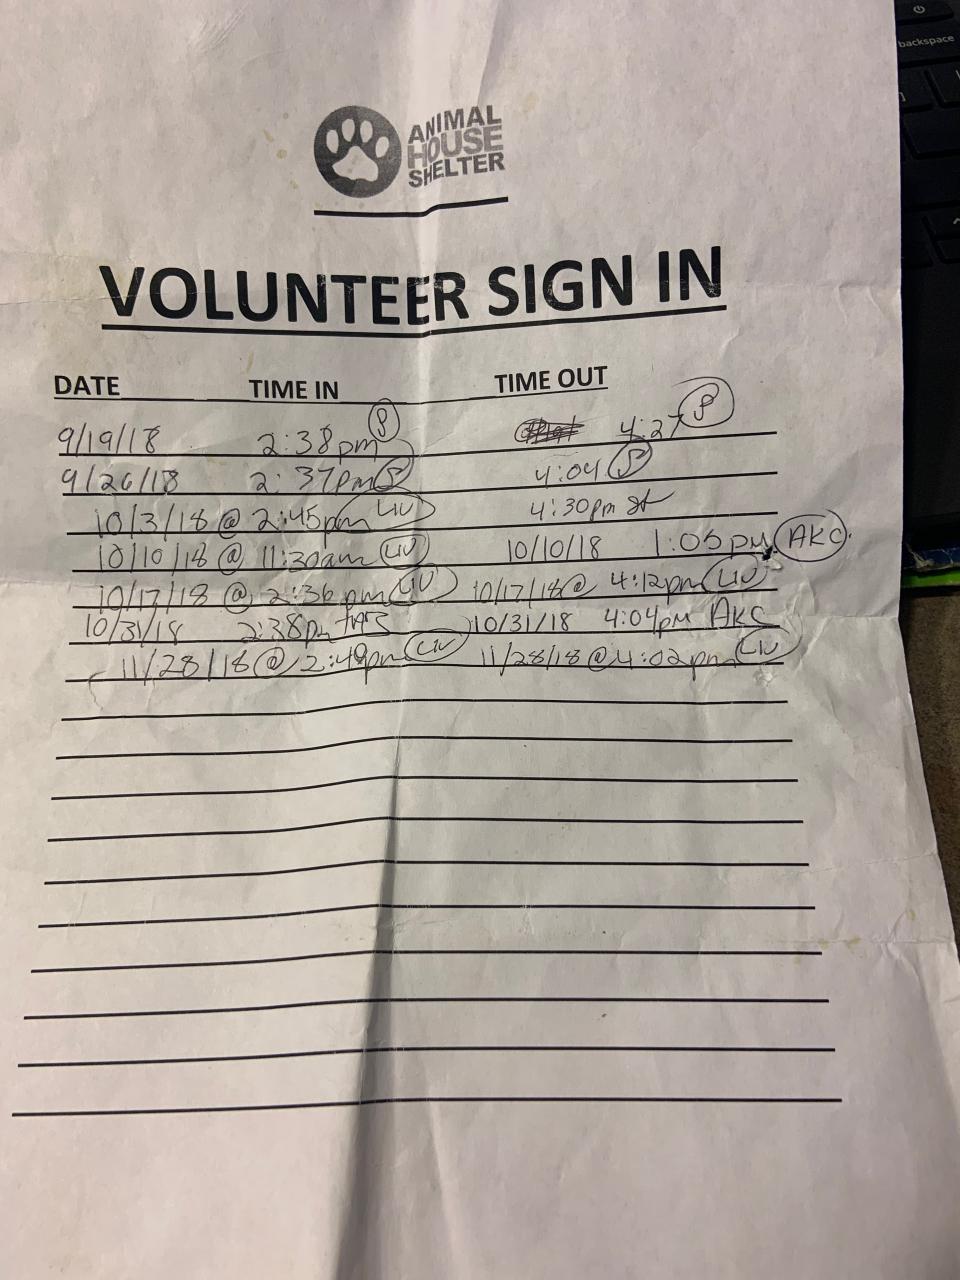 backspace
ANIMAL
HOUSE
SHELTER
VOLUNTEER SIGN IN
DATE TIME IN TIME OUT
9/19/18 2:38pm 4:27
9/26/18 2:37pm 4:04
10/3/18 @ 2:45pm LIV 4:30pm
10/10/18 @ 11:30am LIV 10/10/18 1:05pm AKC
10/17/18 @ 2:36pm LIV 10/17/18 @ 4:12pm LIV
10/31/18 2:38pm 10/31/18 4:04pm AKC
11/28/18 @ 2:49pm LIV 11/28/18 @ 4:02pm LIV